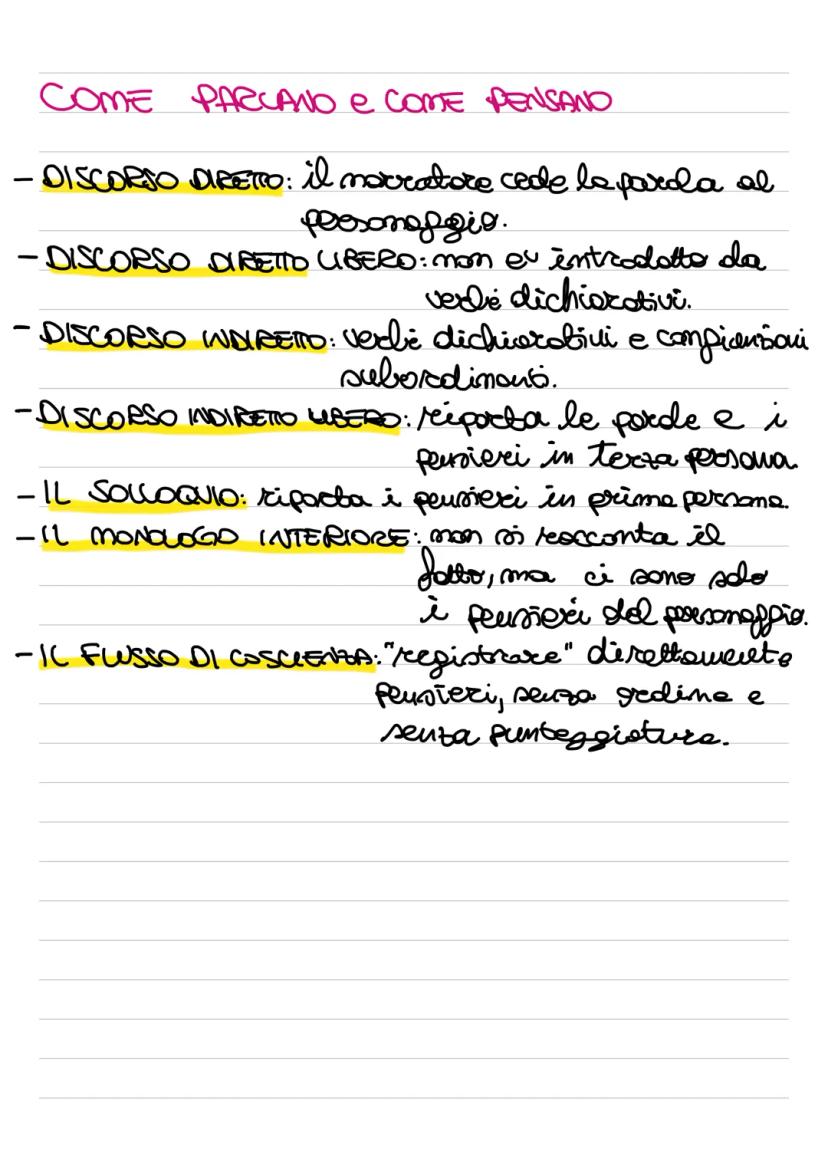 COME PARLANO e COME PENSANO
- DISCORSO DIRETTO: il narratore cede la parola al
personaggio.
- DISCORSO DIRETTO LIBERO: non è introdotto da
verbi dichiarativi.
- DISCORSO INDIRETTO: verbi dichiarativi e congiunzioni
subordinanti.
- DISCORSO INDIRETTO LIBERO: riporta le parole e i
pensieri in terza persona.
- IL SOLILOQUIO: riporta i pensieri in prima persona.
- IL MONOLOGO INTERIORE: non si racconta il
fatto, ma ci sono solo
i pensieri del personaggio.
- IL FLUSSO DI COSCIENZA: "registrare" direttamente
pensieri, senza ordine e
senza punteggiatura.